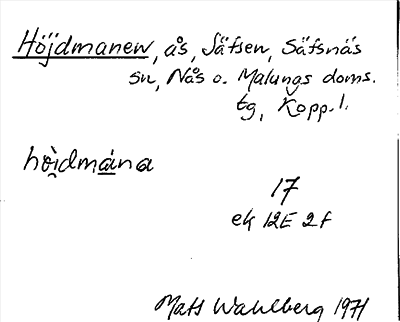 Höjdmanen, ås, Säfsen, Säfsnäs
sn, Nås o. Malungs doms.
tg, Kopp. l.
hòi̯dmána
17
ek 12E 2f
Mats Wahlberg 1971